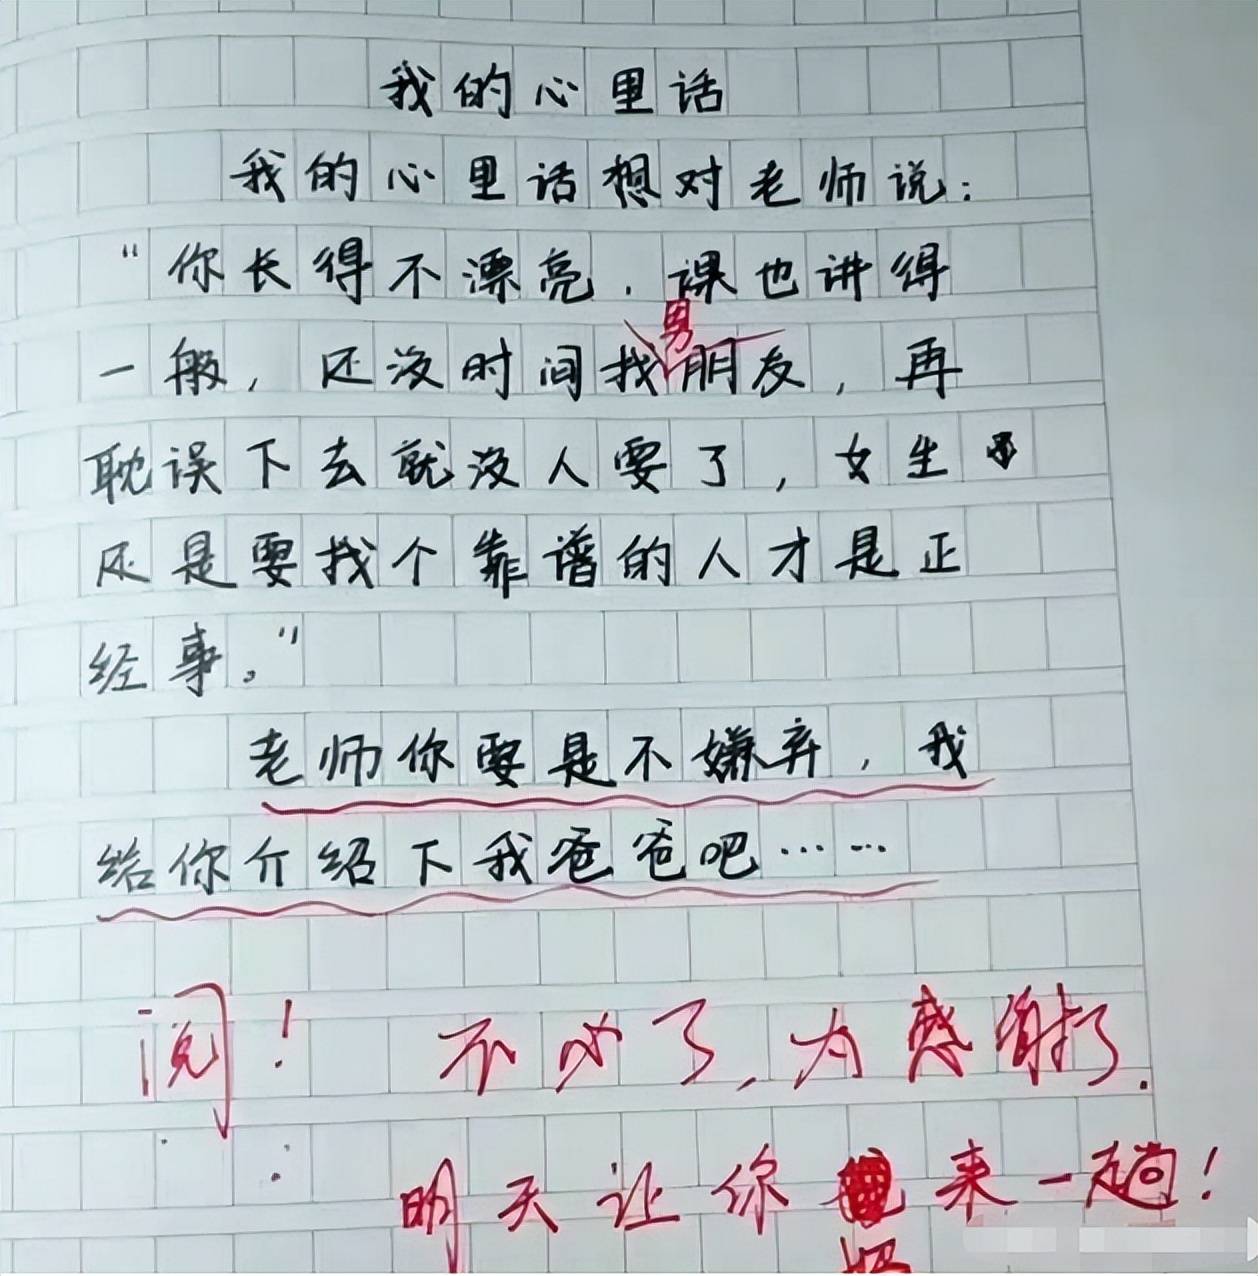 我的心里话
我的心里话想对老师说：
“你长得不漂亮，课也讲得
男
一般，还没时间找朋友，再
耽误下去就没人要了，女生
还是要找个靠谱的人才是正
经事。”
老师你要是不嫌弃，我
给你介绍下我爸爸吧……
阅！ 不必了，大感谢了.
明天让你 来一趟！
妈